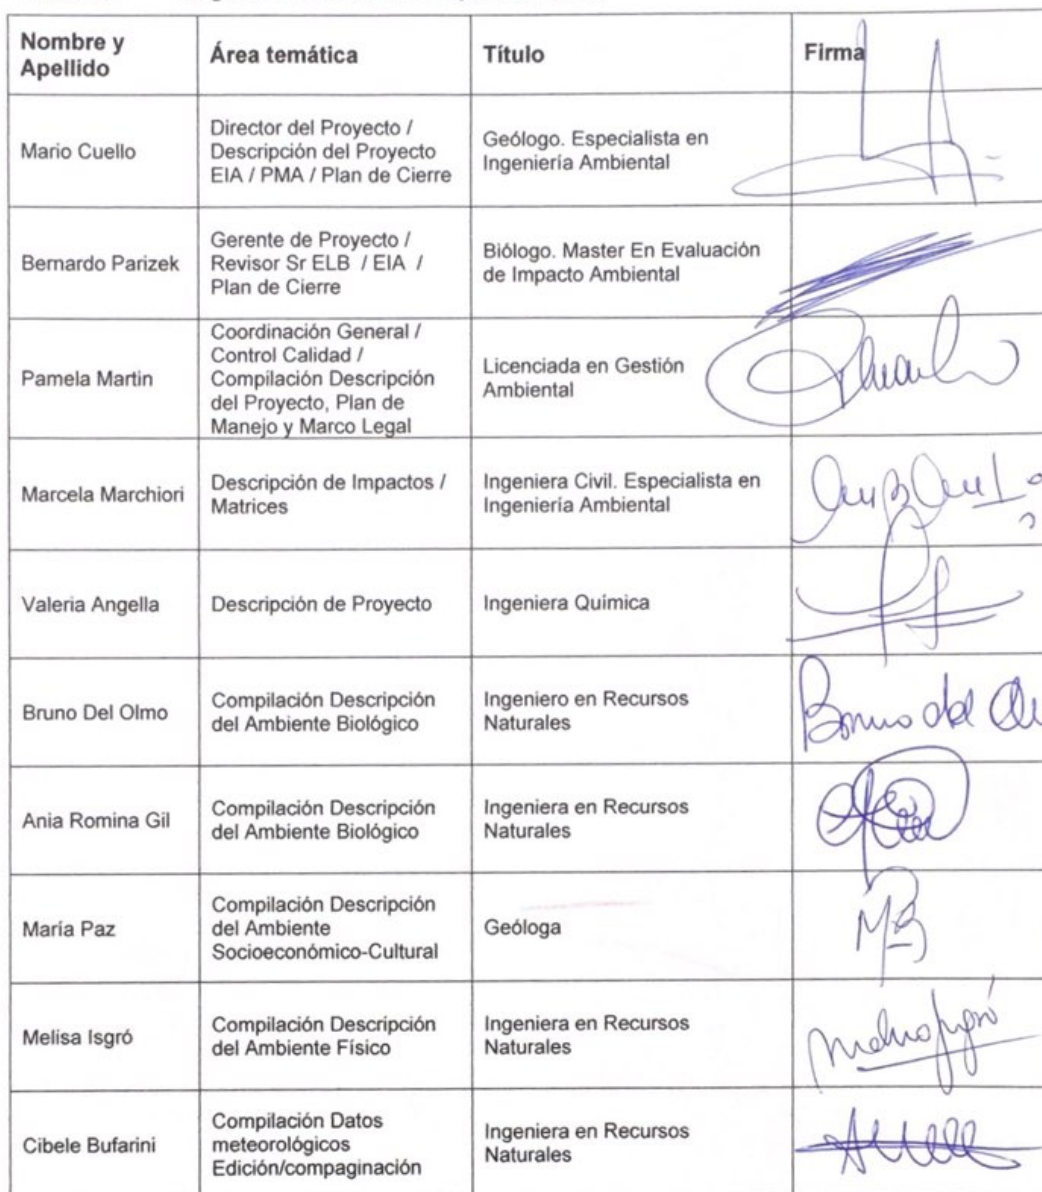 Nombre y
Apellido
Área temática
Título
Firma
Mario Cuello
Director del Proyecto /
Descripción del Proyecto
EIA / PMA / Plan de Cierre
Geólogo. Especialista en
Ingeniería Ambiental
Bernardo Parizek
Gerente de Proyecto /
Revisor Sr ELB / EIA /
Plan de Cierre
Biólogo. Master En Evaluación
de Impacto Ambiental
Pamela Martin
Coordinación General /
Control Calidad /
Compilación Descripción
del Proyecto, Plan de
Manejo y Marco Legal
Licenciada en Gestión
Ambiental
Marcela Marchiori
Descripción de Impactos /
Matrices
Ingeniera Civil. Especialista en
Ingeniería Ambiental
Valeria Angella
Descripción de Proyecto
Ingeniera Química
Bruno Del Olmo
Compilación Descripción
del Ambiente Biológico
Ingeniero en Recursos
Naturales
Bruno del
Ania Romina Gil
Compilación Descripción
del Ambiente Biológico
Ingeniera en Recursos
Naturales
María Paz
Compilación Descripción
del Ambiente
Socioeconómico-Cultural
Geóloga
Melisa Isgró
Compilación Descripción
del Ambiente Físico
Ingeniera en Recursos
Naturales
Cibele Bufarini
Compilación Datos
meteorológicos
Edición/compaginación
Ingeniera en Recursos
Naturales